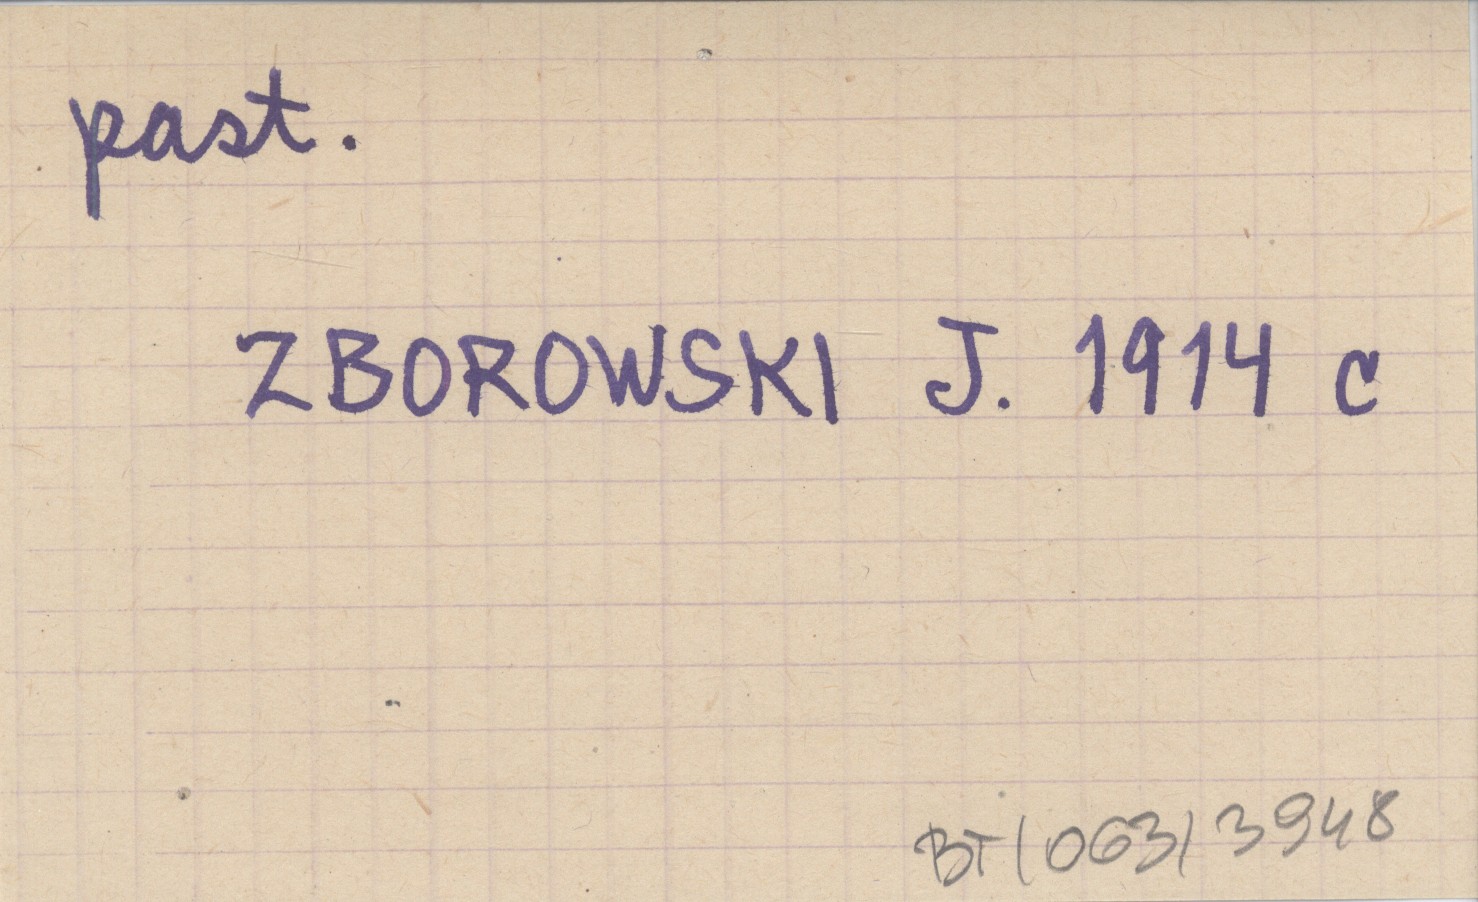 past.
ZBOROWSKI J. 1914 c
BT(063)3948